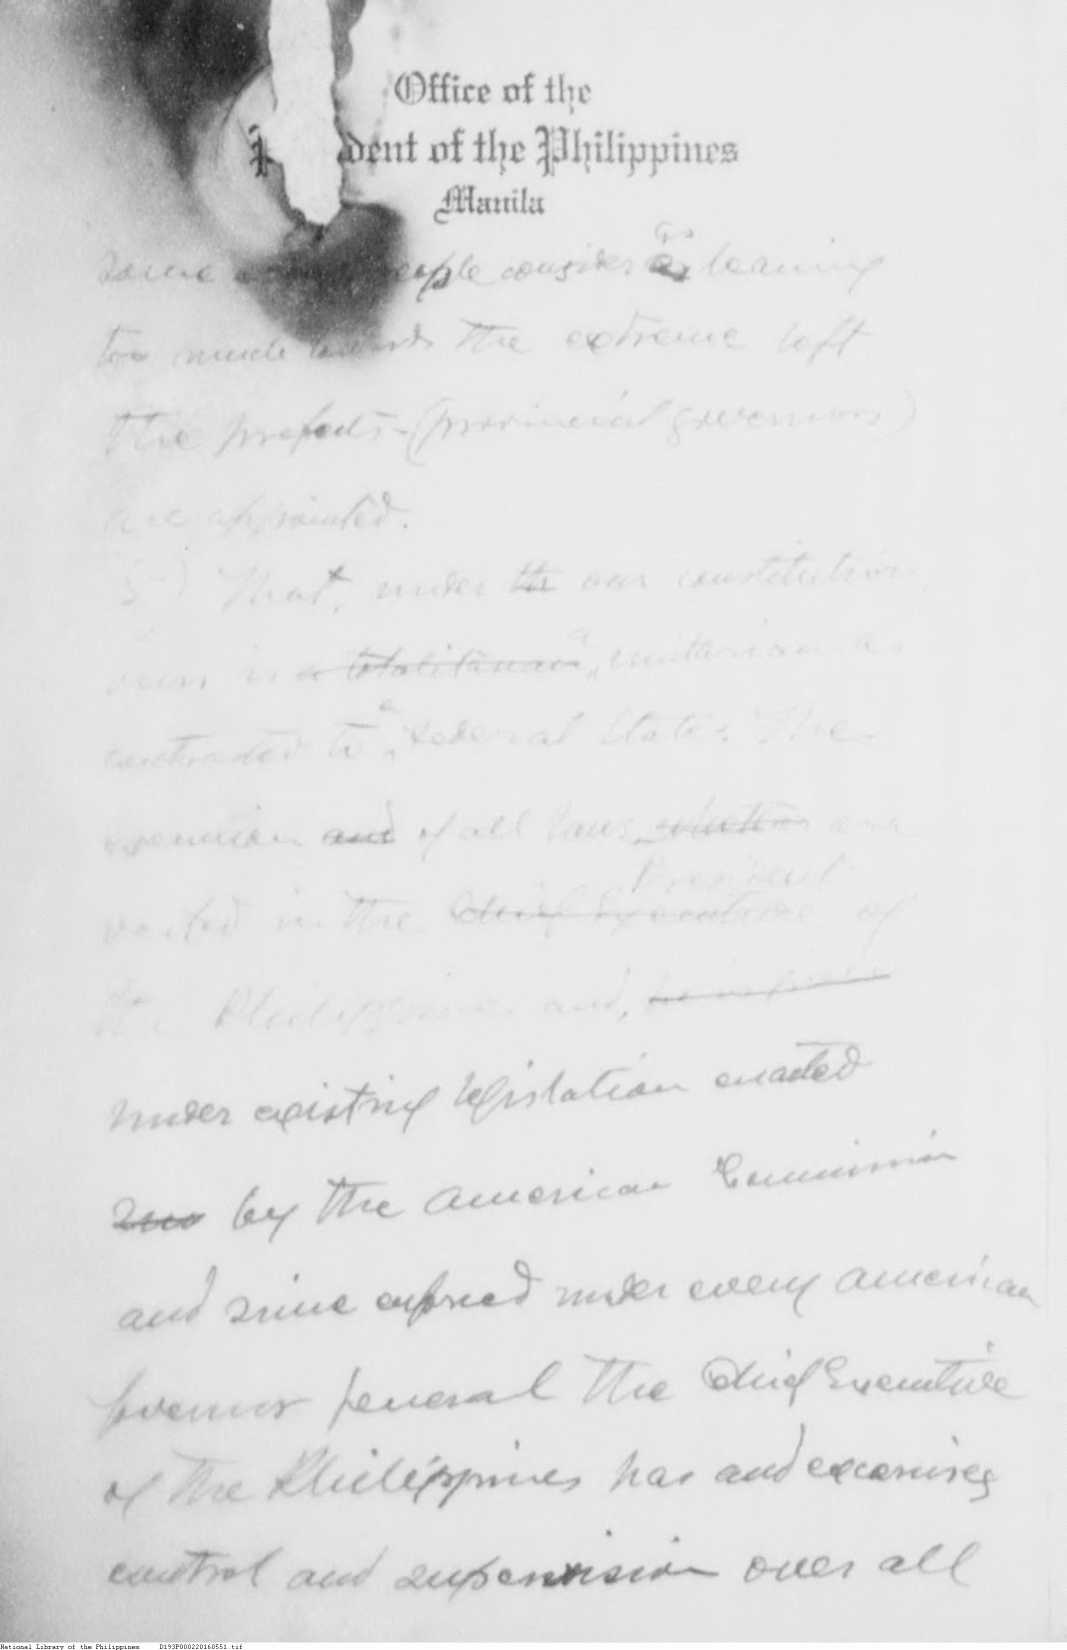 Office of the
dent of the Philippines
Manila
some people consider as leaning
too much towards the extreme left
the prefects - (provincial governors)
are appointed.
5-) That, under the our constitution
ours is a totalitarian, a unitarian as
contrasted to a federal State. The
execution and of all laws, are
vested in the Chief Executive President of
the Philippines and,
under existing legislation enacted
by the American Commission
and since enforced under every American
Governor General the Chief Executive
of the Philippines has and exercises
control and supervision over all
National Library of the Philippines D193P000220160551.tif